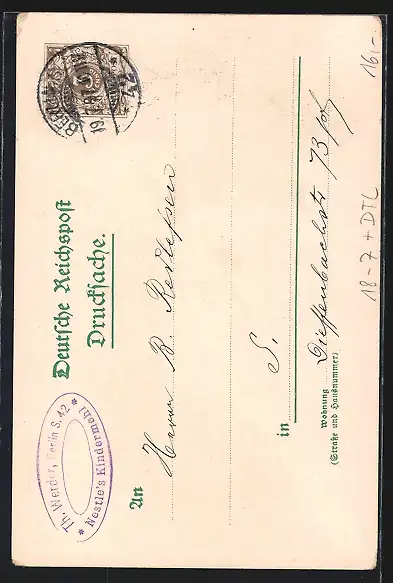 Deutsche Reichspost
Drucksache.
Th. Werder, Berlin S. 42
* Nestle's Kindermehl *
BERLIN S
An Herrn B.
in S.
Wohnung Dieffenbachstr 73
(Straße und Hausnummer)
161,-
18-7 + DTL